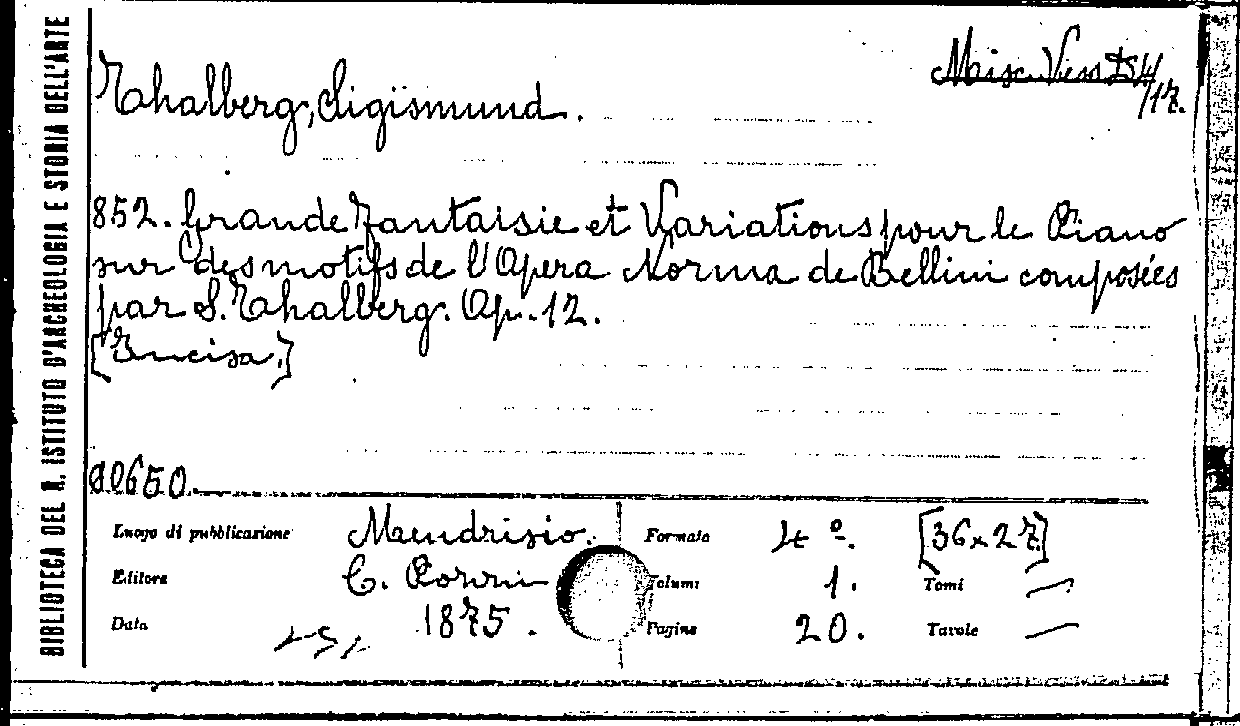 BIBLIOTECA DEL R. ISTITUTO D'ARCHEOLOGIA E STORIA DELL'ARTE
Misc. Vess
/17.
Thalberg, Sigismund.
852. Grande Fantaisie et Variations pour le Piano
sur des motifs de l'Opera Norma de Bellini composées
par S. Thalberg. Op. 12.
[Incisa.]
90650.
Luogo di pubblicazione Mendrisio. Formato 4º. [36x27]
Editore C. Pozzi Volumi 1. Tomi —
Data 1875. Pagine 20. Tavole —